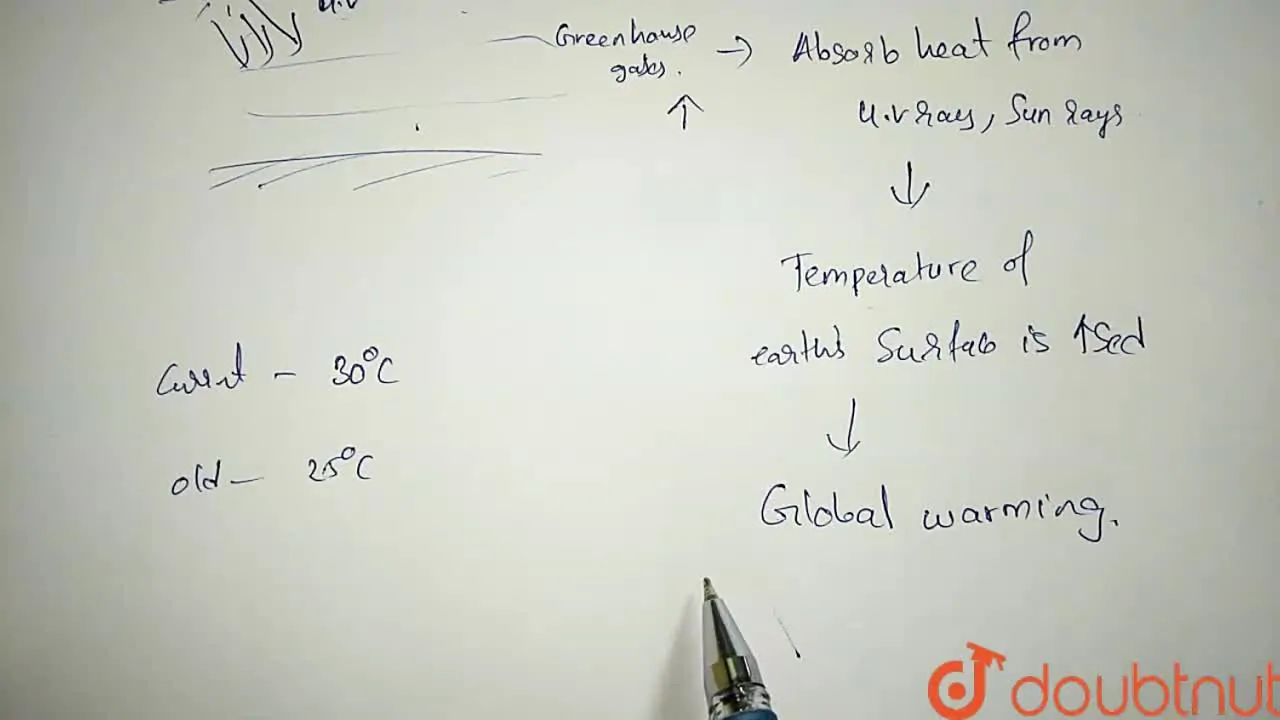 u.v
Greenhouse
gases.
→ Absorb heat from
u.v rays, Sun rays
Temperature of
earth's Surface is ↑Sed
Current - 30°C
old - 25°C
Global warming.
doubtnut